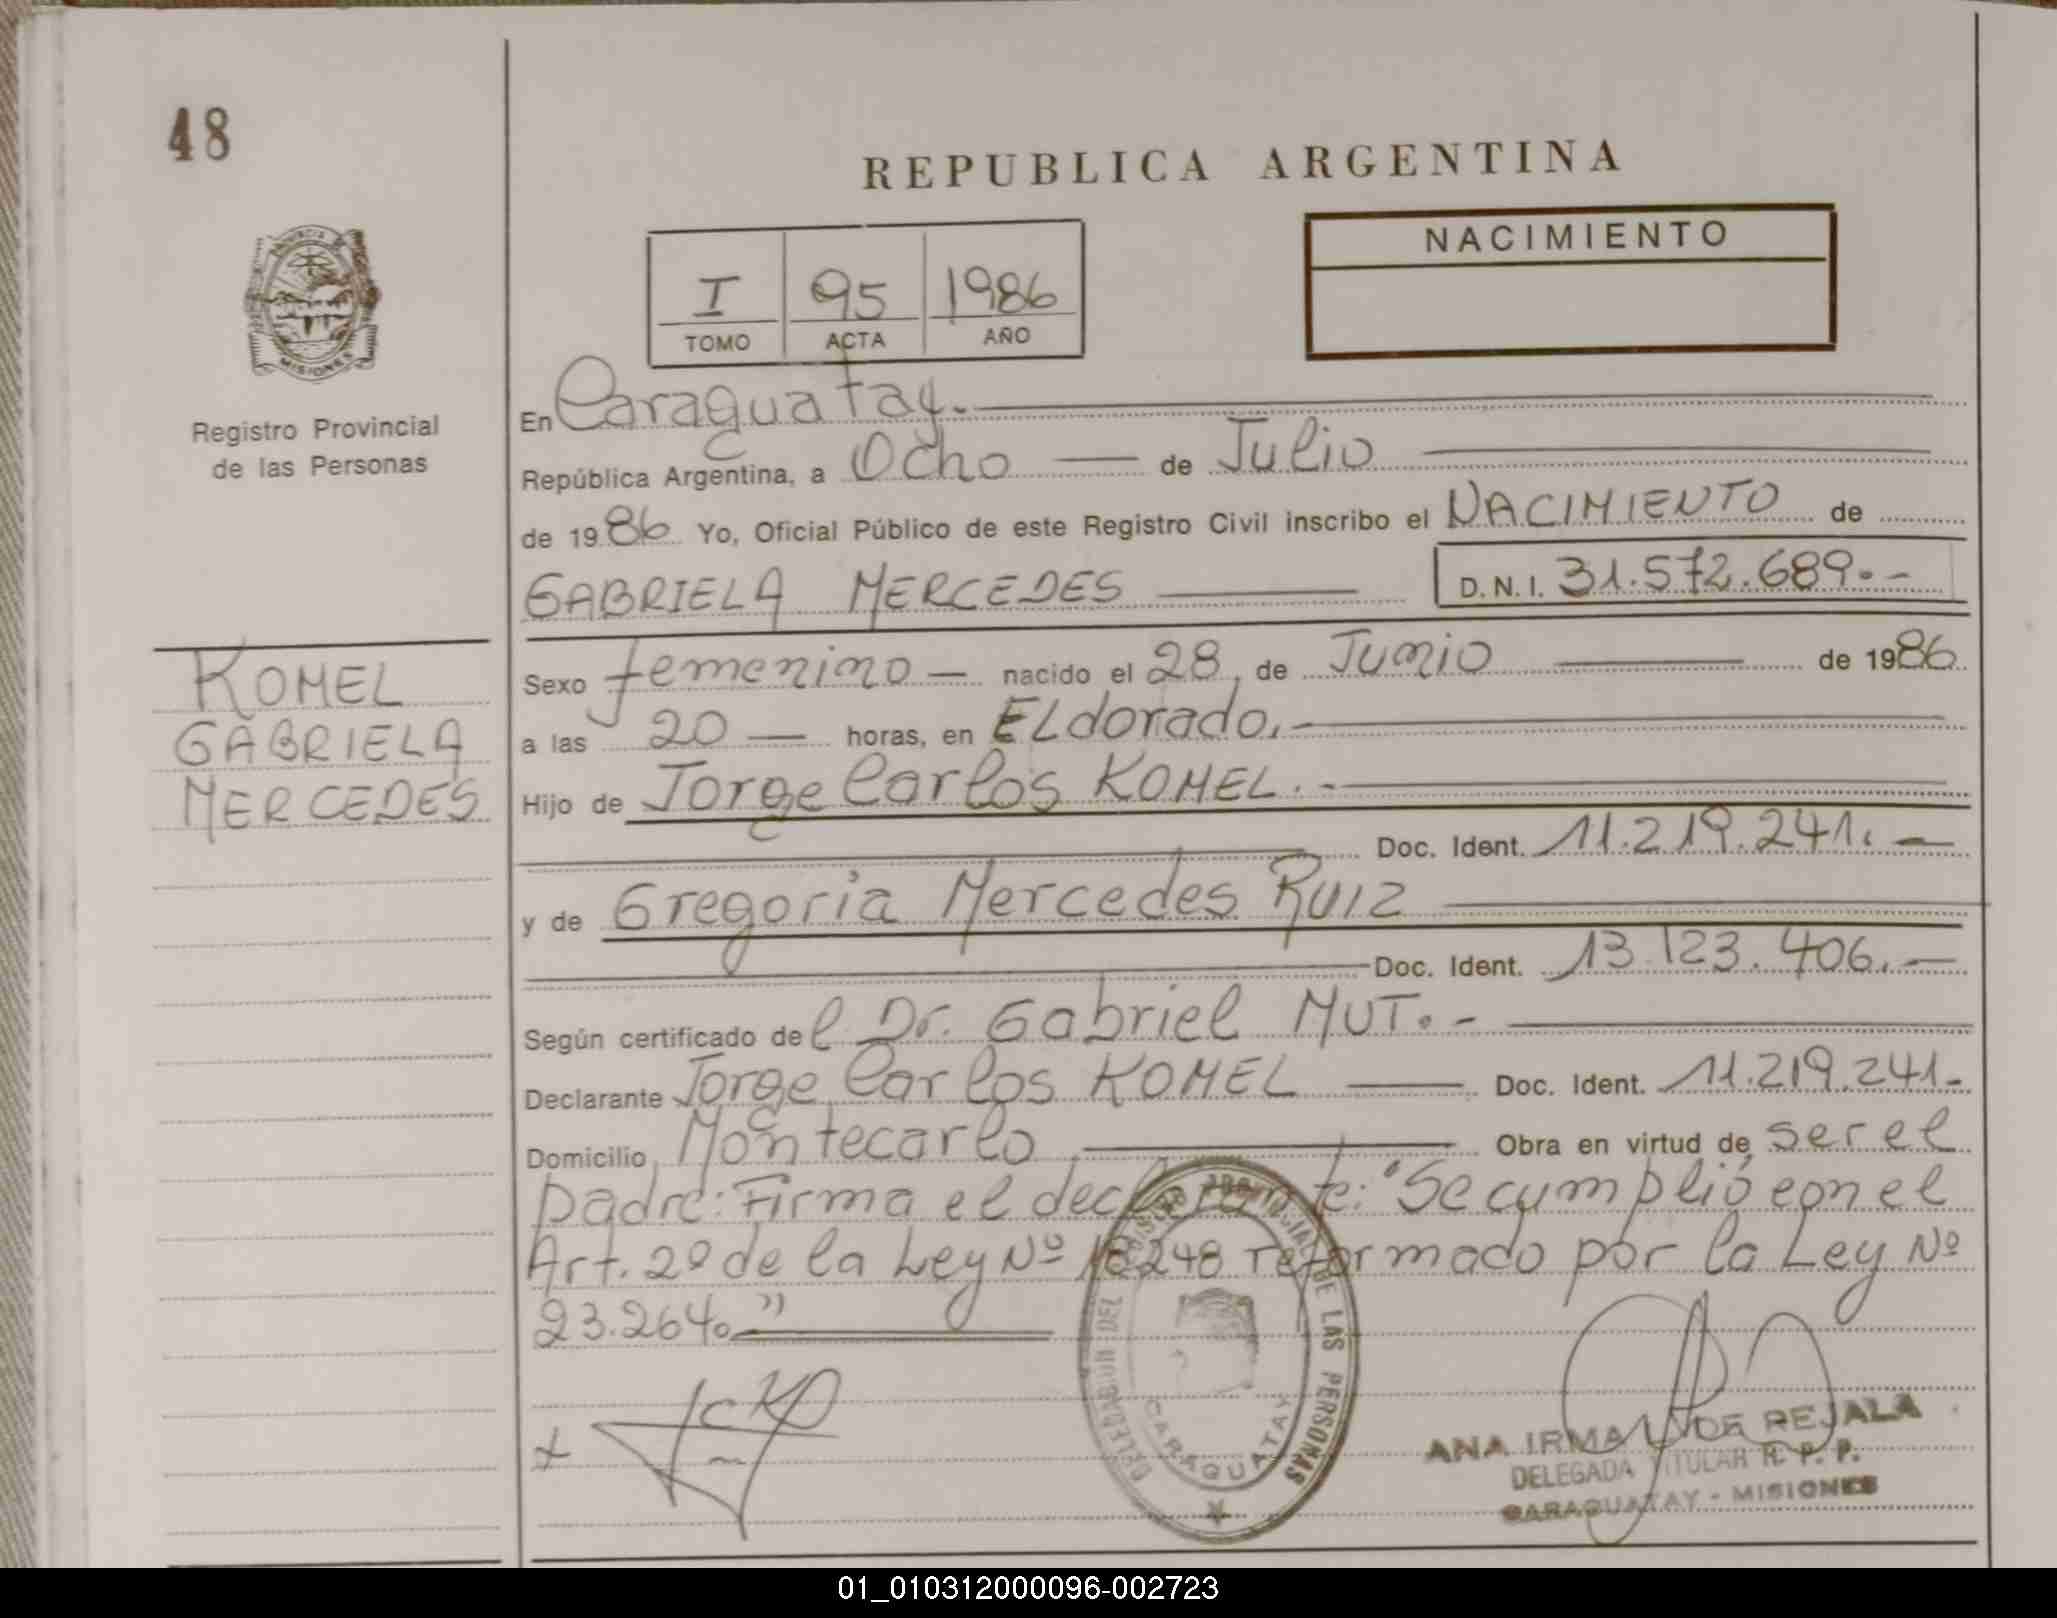 48
REPUBLICA ARGENTINA
PROVINCIA DE
MISIONES
Registro Provincial
de las Personas
I 95 1986
TOMO ACTA AÑO
NACIMIENTO
En Caraguatay.
República Argentina, a Ocho de Julio
de 1986 Yo, Oficial Público de este Registro Civil inscribo el NACIMIENTO de
GABRIELA MERCEDES D.N.I. 31.572.689.-
KOMEL
GABRIELA
MERCEDES
Sexo femenino nacido el 28 de Junio de 1986
a las 20 horas, en ELdorado.
Hijo de Jorge Carlos KOMEL.-
Doc. Ident. 11.219.241.-
y de Gregoria Mercedes RUIZ
Doc. Ident. 13.123.406.-
Según certificado del Dr. Gabriel MUT.-
Declarante Jorge Carlos KOMEL Doc. Ident. 11.219.241-
Domicilio Montecarlo Obra en virtud de ser el
padre: Firma el declarante: "Se cumplió con el
Art. 2º de la Ley Nº 18248 reformado por la Ley Nº
23.264."
DELEGACION DEL REGISTRO PROVINCIAL DE LAS PERSONAS
CARAGUATAY
ANA IRMA DE REJALA
DELEGADA TITULAR R. P. P.
CARAGUATAY - MISIONES
01_010312000096-002723